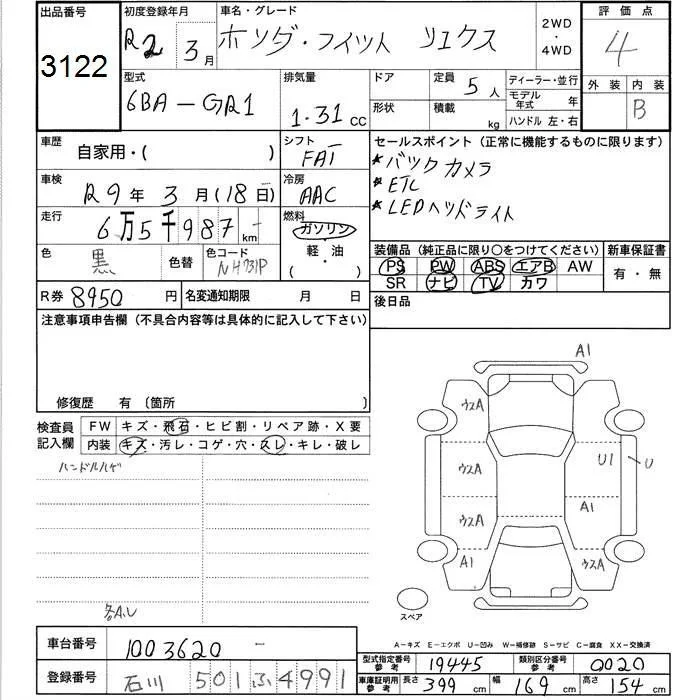 出品番号 初度登録年月 車名・グレード 2WD・4WD 評価点
3122 R2 3月 ホンダ・フィット リュクス 4
型式 排気量 ドア 定員 5人 ディーラー・並行 外装 内装
6BA-GR1 1.31cc 形状 積載 kg モデル年式 年 B
ハンドル 左・右
車歴 自家用・( ) シフト FAT セールスポイント(正常に機能するものに限ります)
車検 R9年3月(18日) 冷房 AAC *バックカメラ
*ETC
*LEDヘッドライト
走行 6万5千987 km 燃料 ガソリン
軽・油
( )
色 黒 色替 色コード NH731P
装備品(純正品に限り○をつけてください) 新車保証書
PS PW ABS エアB AW 有・無
SR ナビ TV カワ
R券 8950円 名変通知期限 月 日 後日品
注意事項申告欄(不具合内容等は具体的に記入して下さい)
修復歴 有〔箇所 〕
検査員記入欄 FW キズ・飛石・ヒビ割・リペア跡・X要
内装 キズ・汚レ・コゲ・穴・スレ・キレ・破レ
ハンドルハゲ
各A.U
A1
ウスA
ウスA U1 U
ウスA A1
A1 ウスA
スペア
A-キズ E-エクボ U-凹み W-補修跡 S-サビ C-腐食 XX-交換済
車台番号 1003620 -
登録番号 石川 501 ふ 4991
型式指定番号参考 19445 類別区分番号参考 0020
車庫証明用参考 長さ 399cm 幅 169cm 高さ 154cm